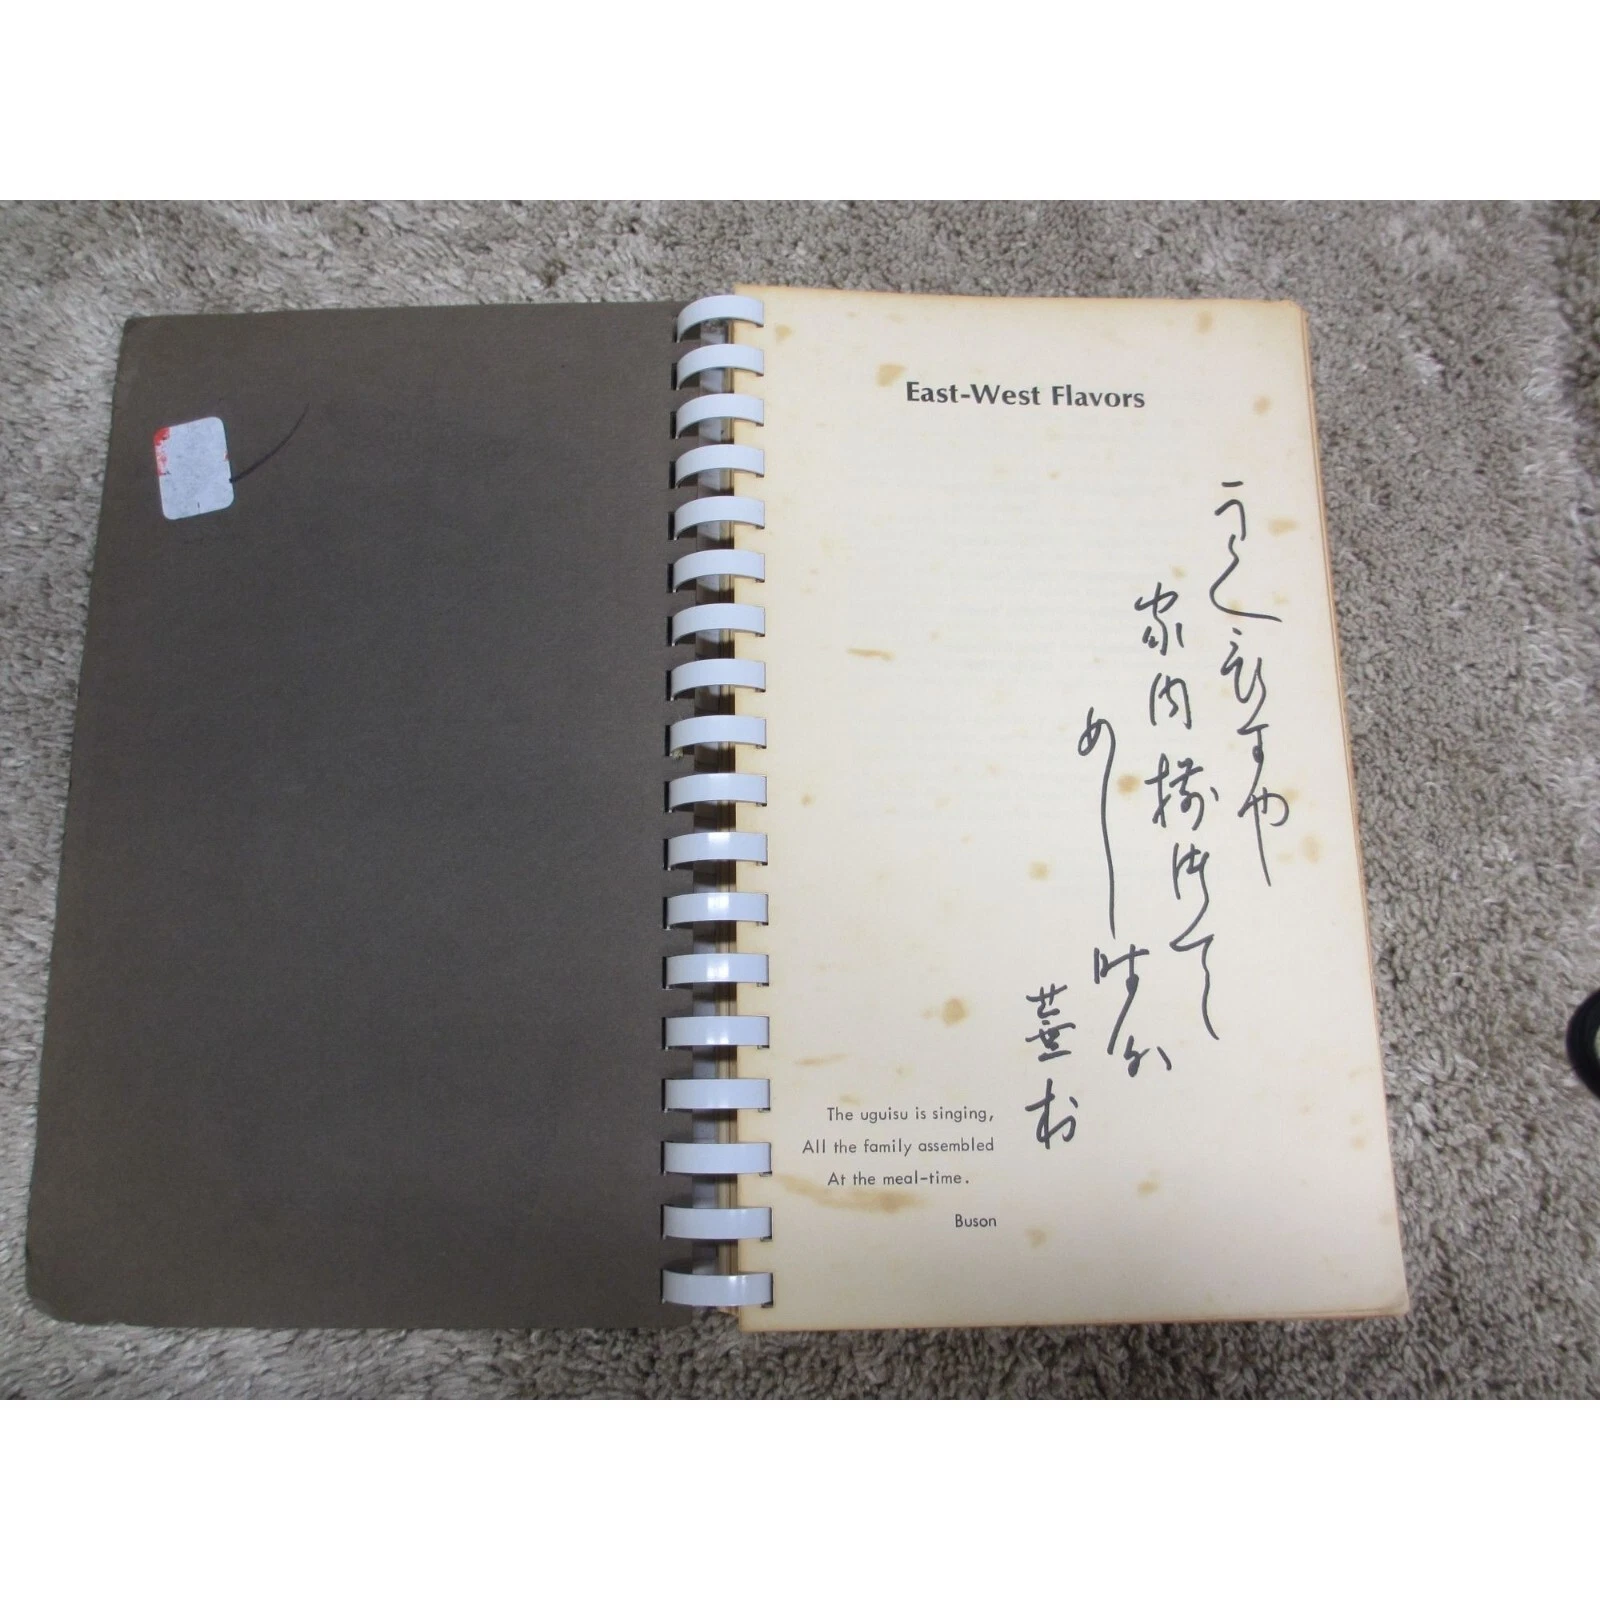 East-West Flavors
うぐひすや
家内揃うて
めし時分
蕪村
The uguisu is singing,
All the family assembled
At the meal-time.
Buson